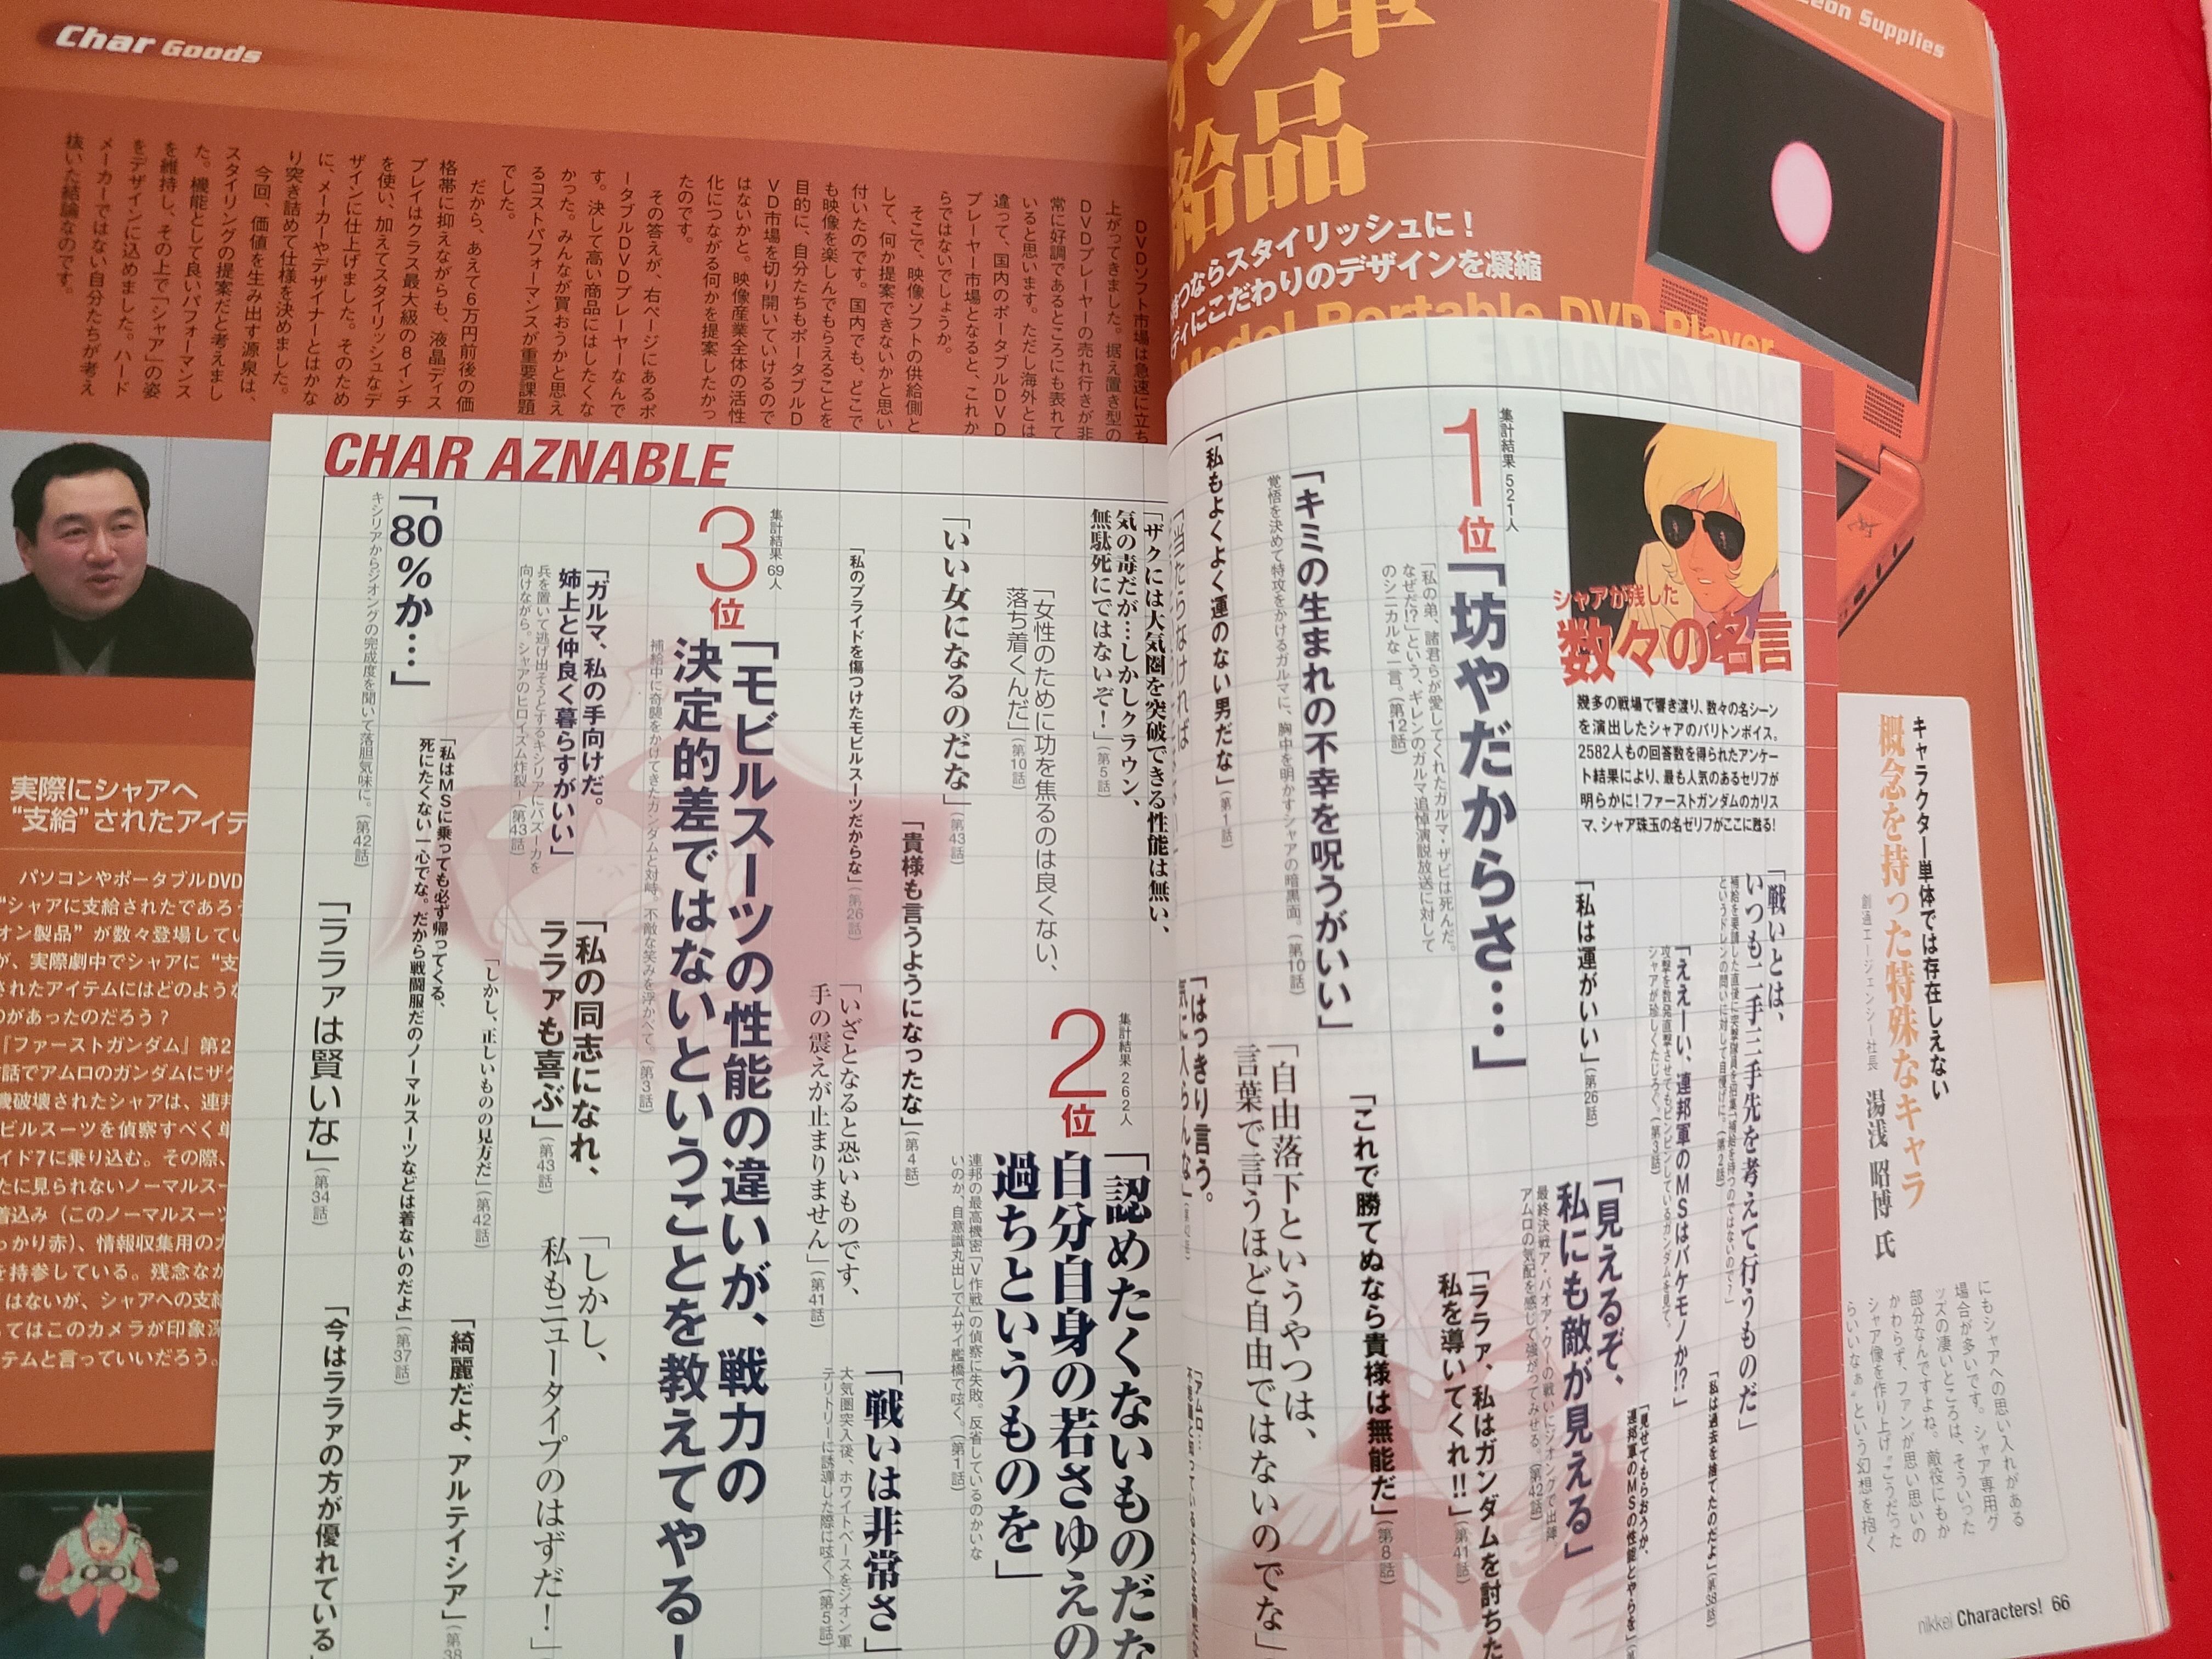 Char Goods
DVDソフト市場は急速に立ち
上がってきました。据え置き型の
DVDプレーヤーの売れ行きが非
常に好調であるところにも表れて
いると思います。ただし海外とは
違って、国内のポータブルDVD
プレーヤー市場となると、これか
らではないでしょうか。
そこで、映像ソフトの供給側と
して、何か提案できないかと思い
付いたのです。国内でも、どこで
も映像を楽しんでもらえることを
目的に、自分たちもポータブルD
VD市場を切り開いていけるので
はないかと。映像産業全体の活性
化につながる何かを提案したかっ
たのです。
その答えが、右ページにあるポ
ータブルDVDプレーヤーなんで
す。決して高い商品にはしたくな
かった。みんなが買おうかと思え
るコストパフォーマンスが重要課題
でした。
だから、あえて6万円前後の価
格帯に抑えながらも、液晶ディス
プレイはクラス最大級の8インチ
を使い、加えてスタイリッシュなデ
ザインに仕上げました。そのため
に、メーカーやデザイナーとはかな
り突き詰めて仕様を決めました。
今回、価値を生み出す源泉は、
スタイリングの提案だと考えまし
た。機能として良いパフォーマンス
を維持し、その上で「シャア」の姿
をデザインに込めました。ハード
メーカーではない自分たちが考え
抜いた結論なのです。
実際にシャアへ
“支給”されたアイテ
パソコンやポータブルDVD
“シャアに支給されたであろう
オン製品”が数々登場してい
が、実際劇中でシャアに“支
されたアイテムにはどのような
のがあったのだろう?
『ファーストガンダム』第2
話でアムロのガンダムにザク
機破壊されたシャアは、連邦
ビルスーツを偵察すべく単
イド7に乗り込む。その際、
たに見られないノーマルスー
着込み（このノーマルスーツ
っかり赤）、情報収集用のカ
を持参している。残念なか
はないが、シャアへの支給
してはこのカメラが印象深
テムと言っていいだろう。
Zeon Supplies
オン軍
給品
持つならスタイリッシュに!
ディにこだわりのデザインを凝縮
Model Portable DVD Player
シャアが残した
数々の名言
幾多の戦場で響き渡り、数々の名シーン
を演出したシャアのバリトンボイス。
2582人もの回答数を得られたアンケー
ト結果により、最も人気のあるセリフが
明らかに!ファーストガンダムのカリス
マ、シャア珠玉の名ゼリフがここに甦る!
「戦いとは、
いつも二手三手先を考えて行うものだ」
補給を要請した直後に突撃隊員を招集「補給を待つのではないので?」
というドレンの問いに対して自慢げに。（第2話）
「私は過去を捨てたのだよ」（第38話）
「ええーい、連邦軍のMSはバケモノか!?」
攻撃を数発直撃させてもピンピンしているガンダムを見て、
シャアが珍しくたじろぐ。（第3話）
「見せてもらおうか、
連邦軍のMSの性能とやらを」
「私は運がいい」（第26話）
「見えるぞ、
私にも敵が見える」
最終決戦ア・バオア・クーの戦いにジオングで出陣
アムロの気配を感じて強がってみせる。（第42話）
集計結果 521人
1位
「坊やだからさ…」
「私の弟、諸君らが愛してくれたガルマ・ザビは死んだ。
なぜだ!?」という、ギレンのガルマ追悼演説放送に対して
のシニカルな一言。（第12話）
「ララァ、私はガンダムを討ちた
私を導いてくれ!!」（第41話）
「キミの生まれの不幸を呪うがいい」
覚悟を決めて特攻をかけるガルマに、胸中を明かすシャアの暗黒面。（第10話）
「これで勝てぬなら貴様は無能だ」（第8話）
「自由落下というやつは、
言葉で言うほど自由ではないのでな」
「私もよくよく運のない男だな」（第1話）
「はっきり言う。
気に入らんな」
「当たらなければ
CHAR AZNABLE
「ザクには大気圏を突破できる性能は無い、
気の毒だが…しかしクラウン、
無駄死にではないぞ!」（第5話）
「女性のために功を焦るのは良くない、
落ち着くんだ」（第10話）
集計結果 262人
2位
「認めたくないものだな
自分自身の若さゆえの
過ちというものを」
連邦の最高機密「V作戦」の偵察に失敗。反省しているのかいな
いのか、自意識丸出しでムサイ艦橋で呟く。（第1話）
「いい女になるのだな」（第43話）
「貴様も言うようになったな」（第4話）
「戦いは非常さ」
大気圏突入後、ホワイトベースをジオン軍
テリトリーに誘導した際に呟く。（第5話）
「私のプライドを傷つけたモビルスーツだからな」（第26話）
「いざとなると恐いものです、
手の震えが止まりません」（第41話）
集計結果 69人
3位
「モビルスーツの性能の違いが、戦力の
決定的差ではないということを教えてやる!
補給中に奇襲をかけてきたガンダムと対峙。不敵な笑みを浮かべて。（第3話）
「ガルマ、私の手向けだ。
姉上と仲良く暮らすがいい」
兵を置いて逃げ出そうとするキシリアにバズーカを
向けながら。シャアのヒロイズム炸裂!（第43話）
「私の同志になれ、
ララァも喜ぶ」（第43話）
「しかし、
私もニュータイプのはずだ!」
「しかし、正しいものの見方だ」（第42話）
「80%か…」
キシリアからジオングの完成度を聞いて落胆気味に。（第42話）
「私はMSに乗っても必ず帰ってくる、
死にたくない一心でな。だから戦闘服だのノーマルスーツなどは着ないのだよ」（第37話）
「綺麗だよ、アルテイシア」（第38
「ララァは賢いな」（第34話）
「今はララァの方が優れている」
キャラクター単体では存在しえない
概念を持った特殊なキャラ
創通エージェンシー社長 湯浅 昭博 氏
にもシャアへの思い入れがある
場合が多いです。シャア専用グ
ッズの凄いところは、そういった
部分なんですよね。敵役にもか
かわらず、ファンが思い思いの
シャア像を作り上げ“こうだった
らいいなぁ”という幻想を抱く
nikkei Characters! 66